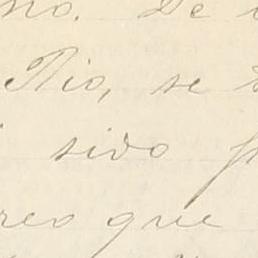 no. De
Rio, se
sido
reo que